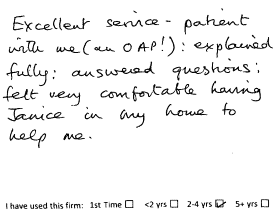 Excellent service - patient
with me (an OAP!): explained
fully: answered questions:
felt very comfortable having
Janice in my home to
help me.
I have used this firm: 1st Time ☐ <2 yrs ☐ 2-4 yrs ☑ 5+ yrs ☐